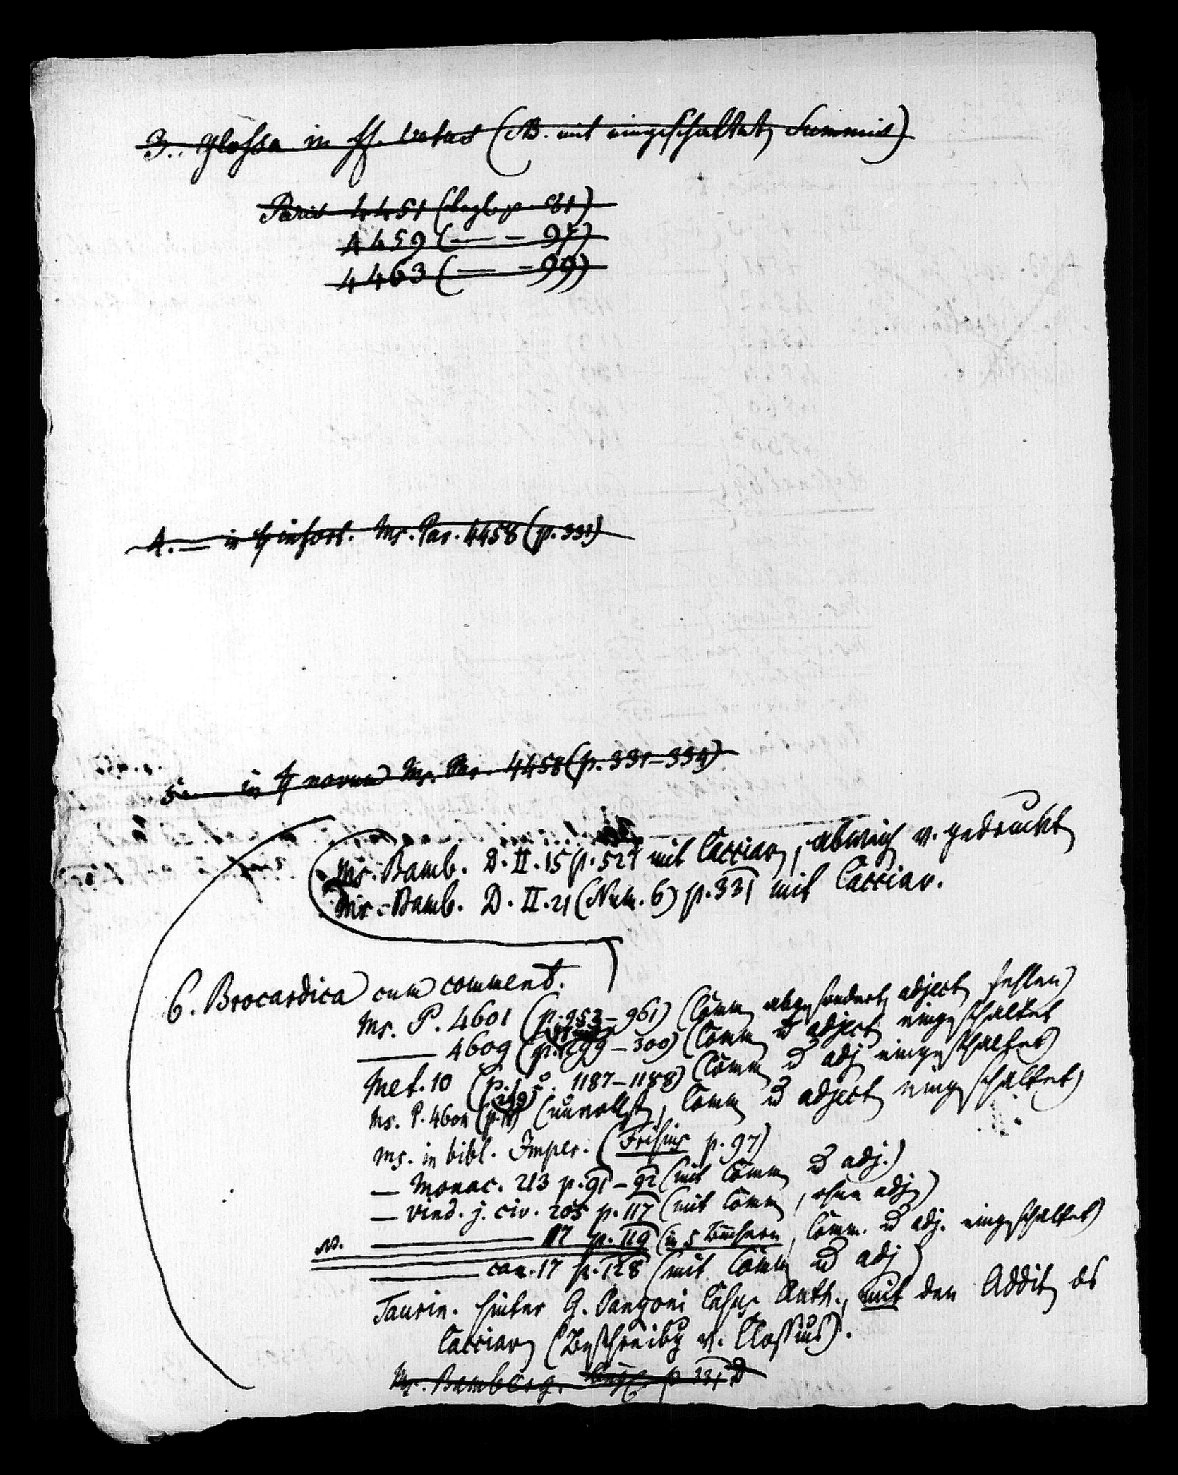 3. Glossa in ff. vetus (NB. mit eingeschaltet Summis)
Paris 4451 (p. 81)
4459 (— – 97)
4463 (— – 99)
4. — in ff infort. Ms. Par. 4458 (p. 331)
5. — in ff novum Ms. Par. 4458 (p. 331–334)
Ms. Bamb. D. II. 15 p. 527 mit Cacciav, abweich v. gedruckt
Ms. Bamb. D. II. 21 (Num. 6) p. 331 mit Cacciav.
6. Brocardica cum comment.
Ms. P. 4601 (p. 953–961) (Comm abgesondert, adject fehlen)
— 4609 (p. 299–300) (Comm u adject eingeschaltet
Met. 10 (p. 1187–1188) (Comm u adj eingeschaltet)
Ms. P. 4604 (unvollst, Comm u adject eingeschaltet)
Ms. in bibl. Imper. (Frisius p. 97)
— Monac. 213 p. 91–92 (mit Comm u adj.)
— Vind. j. civ. 205 p. 117 (mit Comm, ohne adj)
N. — 17 p. 119 (in 5 Büchern, Comm. u adj. eingeschaltet)
— can. 17 p. 128 (mit Comm u adj)
Taurin. hinter G. Pangoni Casus Auth., mit den Addit des
Cacciav (Beschreibg v. Clossius).
Ms. Bamberg. p 331